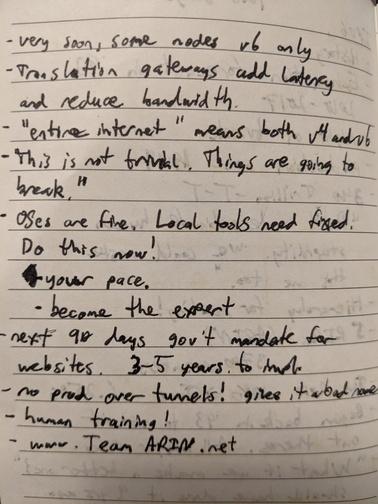 - very soon, some nodes v6 only
- Translation gateways add latency
and reduce bandwidth.
- "entire internet" means both v4 and v6
- This is not trivial. Things are going to
break."
- OSes are fine. Local tools need fixed.
Do this now!
- your pace.
- become the expert
- next 90 days gov't mandate for
websites. 3-5 years to
- no prod over tunnels! gives it a bad name
- human training!
- www.TeamARIN.net